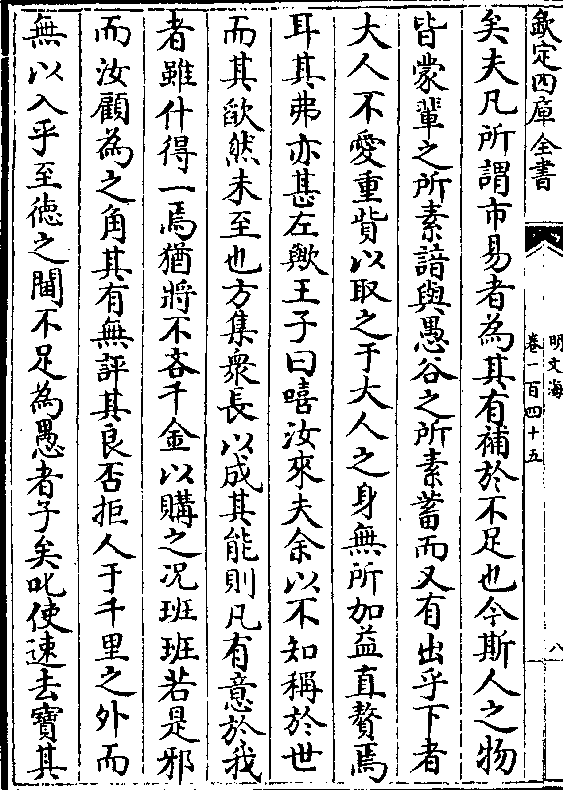 欽定四庫全書
明文海
卷一百四十五
八
矣夫凡所謂市易者為其有補於不足也今斯人之物
皆蒙輩之所素諳與愚谷之所素蓄而又有出乎下者
大人不愛重貲以取之于大人之身無所加益直贅焉
耳其弗亦甚左歟王子曰嘻汝來夫余以不知稱於世
而其欿然未至也方集衆長以成其能則凡有意於我
者雖什得一焉猶將不吝千金以購之况班班若是邪
而汝顧為之角其有無評其良否拒人于千里之外而
無以入乎至徳之閫不足為愚者子矣叱使速去寶其